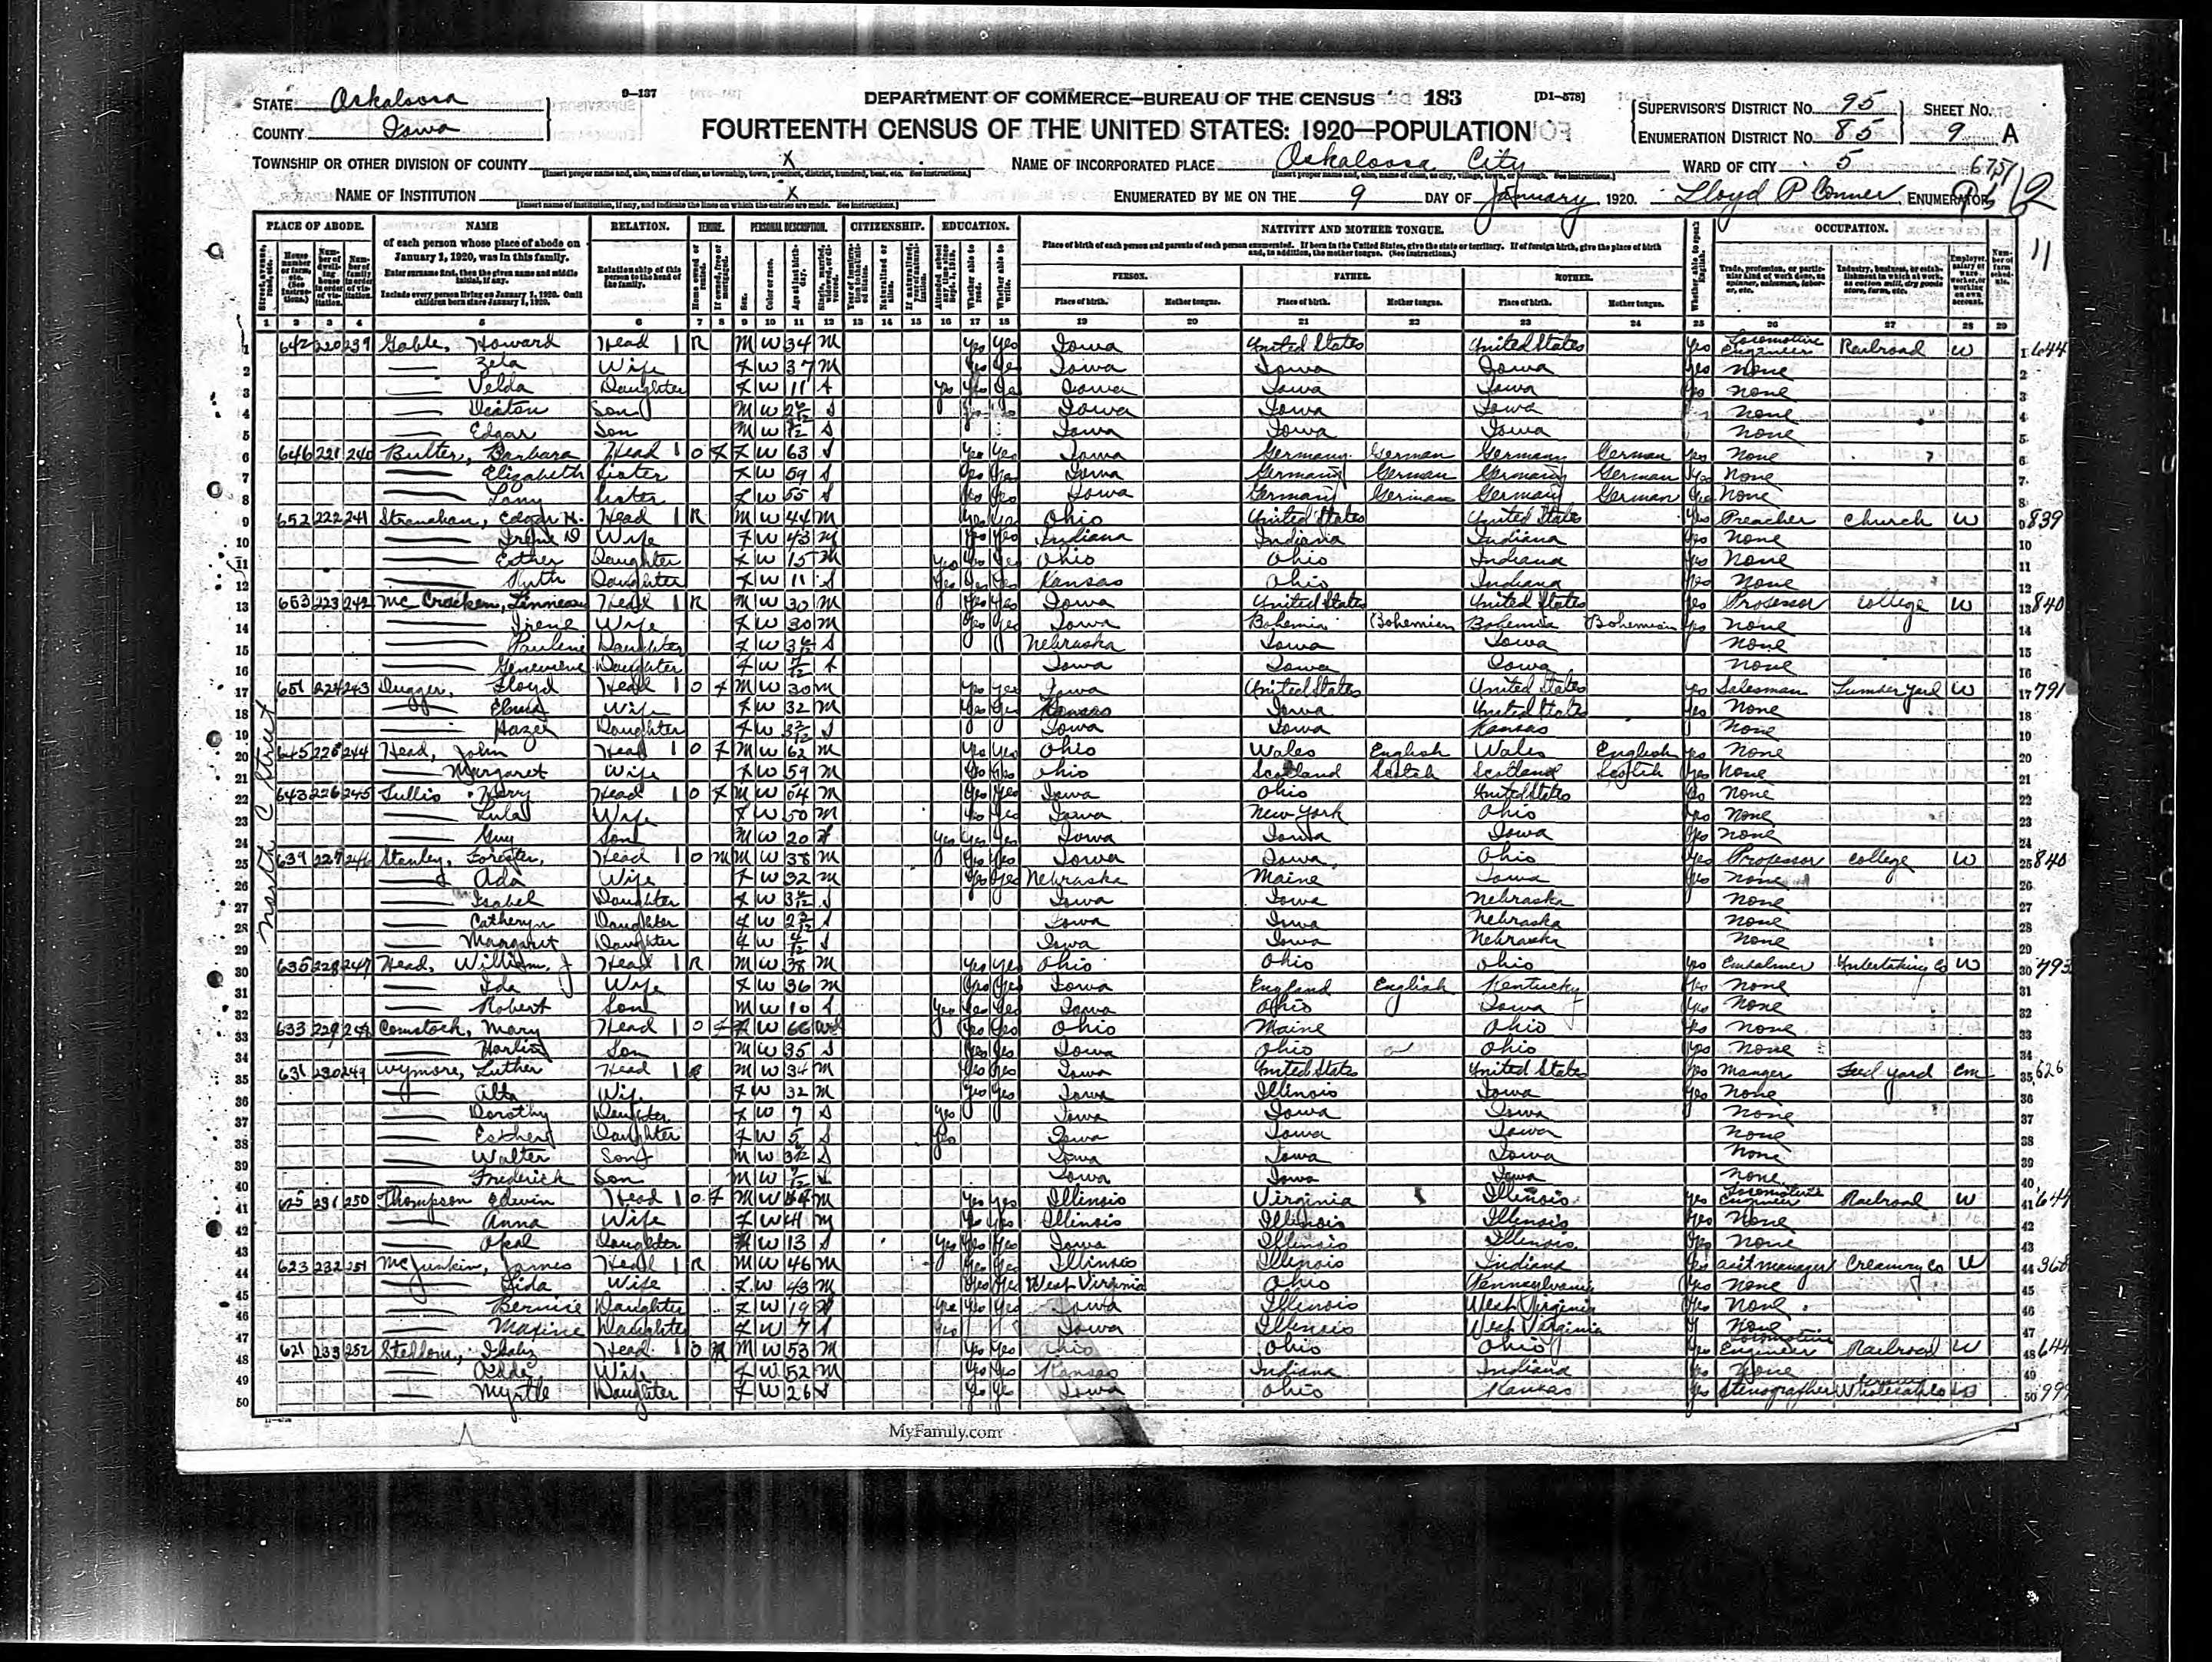 STATE Oskaloosa
COUNTY Iowa
9—137
DEPARTMENT OF COMMERCE—BUREAU OF THE CENSUS 183 [D1-578]
FOURTEENTH CENSUS OF THE UNITED STATES: 1920—POPULATION
SUPERVISOR'S DISTRICT No. 95 SHEET No.
ENUMERATION DISTRICT No. 85 9 A
TOWNSHIP OR OTHER DIVISION OF COUNTY X NAME OF INCORPORATED PLACE Oskaloosa City WARD OF CITY 5
NAME OF INSTITUTION X ENUMERATED BY ME ON THE 9 DAY OF January, 1920. Lloyd P Conner, ENUMERATOR
PLACE OF ABODE. NAME RELATION. TENURE. PERSONAL DESCRIPTION. CITIZENSHIP. EDUCATION. NATIVITY AND MOTHER TONGUE. OCCUPATION.
of each person whose place of abode on January 1, 1920, was in this family.
Enter surname first, then the given name and middle initial, if any.
Include every person living on January 1, 1920. Omit children born since January 1, 1920.
Relationship of this person to the head of the family.
Place of birth of each person and parents of each person enumerated. If born in the United States, give the state or territory. If of foreign birth, give the place of birth and, in addition, the mother tongue. (See Instructions.)
PERSON. FATHER. MOTHER.
Place of birth. Mother tongue. Place of birth. Mother tongue. Place of birth. Mother tongue.
1 2 3 4 5 6 7 8 9 10 11 12 13 14 15 16 17 18 19 20 21 22 23 24 25 26 27 28 29
North C Street
1 642 220 239 Gable, Howard Head 1 R M W 34 M Yes Yes Iowa United States United States Yes Locomotive Engineer Railroad W 644
2 Zela Wife F W 37 M Yes Yes Iowa Iowa Iowa Yes None
3 Velda Daughter F W 11 S Yes Yes Yes Iowa Iowa Iowa Yes None
4 Son M W S Iowa Iowa Iowa None
5 Edgar Son M W S Iowa Iowa Iowa None
6 646 221 240 Butter, Barbara Head 1 O F F W 63 S Yes Yes Iowa Germany German Germany German Yes None
7 Elizabeth Sister F W 59 S Yes Yes Iowa Germany German Germany German Yes None
8 Sister F W 55 S Yes Yes Iowa Germany German Germany German Yes None
9 652 222 241 Stranahan, Edgar H. Head 1 R M W 44 M Yes Yes Ohio United States United States Yes Preacher Church W 839
10 Irene D Wife F W 43 M Yes Yes Indiana Indiana Indiana Yes None
11 Esther Daughter F W 15 M Yes Yes Yes Ohio Ohio Indiana Yes None
12 Ruth Daughter F W 11 S Yes Yes Yes Kansas Ohio Indiana Yes None
13 653 223 242 McCracken, Linneaus Head 1 R M W 30 M Yes Yes Iowa United States United States Yes Professor College W 840
14 Irene Wife F W 30 M Yes Yes Iowa Bohemia Bohemian Bohemia Bohemian Yes None
15 Pauline Daughter F W S Nebraska Iowa Iowa None
16 Genevieve Daughter F W S Iowa Iowa Iowa None
17 651 224 243 Dugger, Floyd Head 1 O F M W 30 M Yes Yes Iowa United States United States Yes Salesman Lumber yard W 791
18 Wife F W 32 M Yes Yes Kansas Iowa United States Yes None
19 Hazel Daughter F W S Iowa Iowa Kansas None
20 645 225 244 Head, John Head 1 O F M W 62 M Yes Yes Ohio Wales English Wales English Yes None
21 Margaret Wife F W 59 M Yes Yes Ohio Scotland Scotch Scotland Scotch Yes None
22 643 226 245 Tullis Head 1 O F M W 54 M Yes Yes Iowa Ohio United States Yes None
23 Lula Wife F W 50 M Yes Yes Iowa New York Ohio Yes None
24 Guy Son M W 20 S Yes Yes Yes Iowa Iowa Iowa Yes None
25 639 227 246 Stanley, Forester, Head 1 O M M W 38 M Yes Yes Iowa Iowa Ohio Yes Professor College W 840
26 Ada Wife F W 32 M Yes Yes Nebraska Maine Iowa Yes None
27 Isabel Daughter F W S Iowa Iowa Nebraska None
28 Catheryn Daughter F W S Iowa Iowa Nebraska None
29 Margaret Daughter F W S Iowa Iowa Nebraska None
30 635 228 247 Head, William J Head 1 R M W 38 M Yes Yes Ohio Ohio Ohio Yes Embalmer Undertaking Co W 793
31 Ida Wife F W 36 M Yes Yes Iowa England English Kentucky Yes None
32 Robert Son M W 10 S Yes Yes Yes Iowa Ohio Iowa Yes None
33 633 229 248 Comstock, Mary Head 1 O F F W 66 Wd Yes Yes Ohio Maine Ohio Yes None
34 Harlie Son M W 35 S Yes Yes Iowa Ohio Ohio Yes None
35 631 230 249 Wymore, Luther Head 1 R M W 34 M Yes Yes Iowa United States United States Yes Manger Feed yard Em 626
36 Alta Wife F W 32 M Yes Yes Iowa Illinois Iowa Yes None
37 Dorothy Daughter F W 7 S Yes Iowa Iowa Iowa None
38 Esther Daughter F W 5 S Yes Iowa Iowa Iowa None
39 Walter Son M W S Iowa Iowa Iowa None
40 Frederick Son M W S Iowa Iowa Iowa None
41 625 231 250 Thompson Edwin Head 1 O F M W M Yes Yes Illinois Virginia Illinois Yes Locomotive Engineer Railroad W 644
42 Anna Wife F W 41 M Yes Yes Illinois Illinois Illinois Yes None
43 Opal Daughter W 13 S Yes Yes Yes Iowa Illinois Illinois Yes None
44 623 232 251 McJunkin, James Head 1 R M W 46 M Yes Yes Illinois Illinois Indiana Yes Ass't manager Creamery Co W 368
45 Lida Wife F W 43 M Yes Yes West Virginia Ohio Pennsylvania Yes None
46 Bernice Daughter F W 19 S Yes Yes Yes Iowa Illinois West Virginia Yes None
47 Maxine Daughter F W 7 S Yes Iowa Illinois West Virginia None
48 621 233 252 Head 1 O M M W 53 M Yes Yes Ohio Ohio Ohio Yes Locomotive Engineer Railroad W 644
49 Wife F W 52 M Yes Yes Kansas Indiana Indiana Yes None
50 Myrtle Daughter F W 26 S Yes Yes Iowa Ohio Kansas Yes Stenographer Wholesale Co W 999
MyFamily.com
KODAK SAFETY